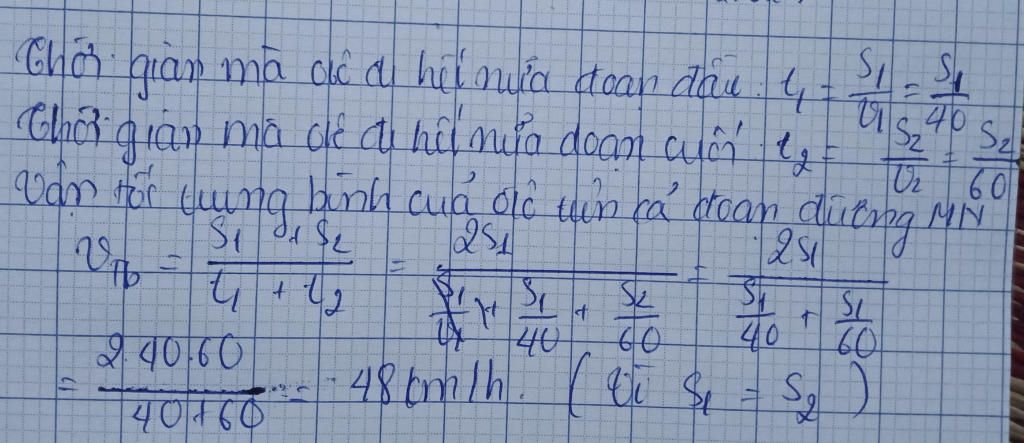 Thời gian mà ôtô đi hết nửa đoạn đầu: t₁ = S₁/v₁ = S₁/40
Thời gian mà ôtô đi hết nửa đoạn cuối: t₂ = S₂/v₂ = S₂/60
Vận tốc trung bình của ôtô trên cả đoạn đường MN
v_Tb = (S₁ + S₂)/(t₁ + t₂) = 2S₁/(S₁/40 + S₂/60) = 2S₁/(S₁/40 + S₁/60)
= 2.40.60/(40+60) = 48 km/h. (Vì S₁ = S₂)